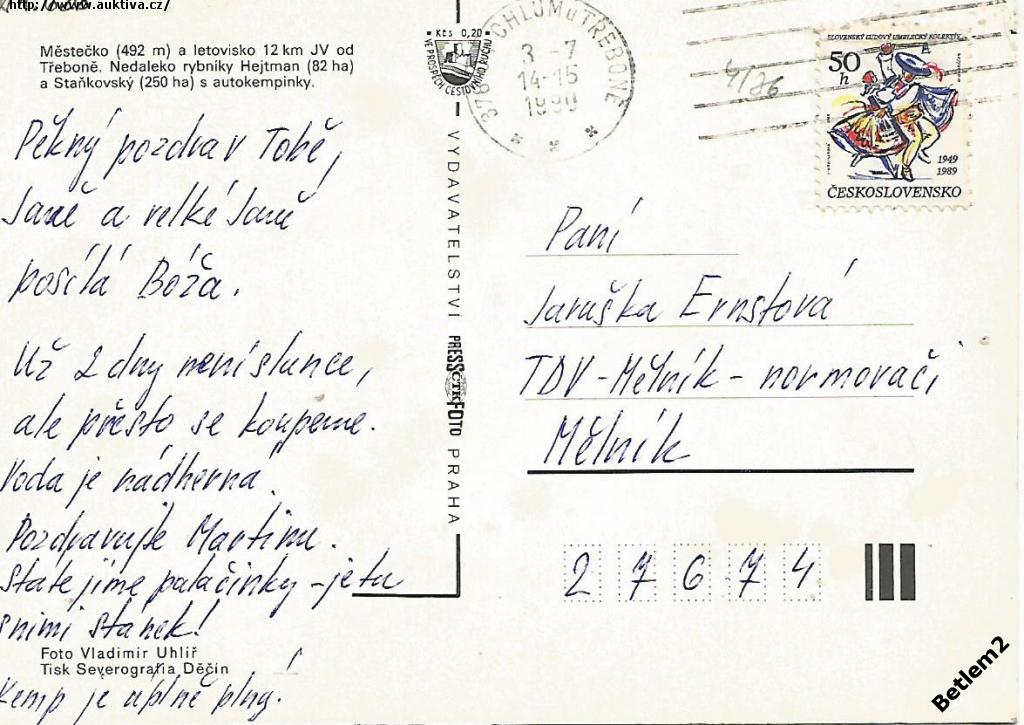 http://www.auktiva.cz/
Městečko (492 m) a letovisko 12 km JV od
Třeboně. Nedaleko rybníky Hejtman (82 ha)
a Staňkovský (250 ha) s autokempinky.
Pěkný pozdrav Tobě,
Janě a velké Janě
posílá Bóža.
Už 2 dny není slunce,
ale přesto se koupeme.
Voda je nádherná.
Pozdravujte Martinu.
Stále jíme palačinky - je tu
s nimi stánek!
Foto Vladimír Uhlíř
Tisk Severografia Děčín
Kemp je úplně plný.
Kčs 0,20
VE PROSPĚCH CESTOVNÍHO RUCHU
VYDAVATELSTVÍ PRESSFOTO PRAHA
ČTK
378 CHLUM U TŘEBONĚ
3 -7
14-15
1990
4/76
SLOVENSKÝ ĽUDOVÝ UMELECKÝ KOLEKTÍV
50
h
1949
1989
ČESKOSLOVENSKO
Paní
Jaruška Ernstová
TDV - Mělník - normovači
Mělník
27674
Betlem2